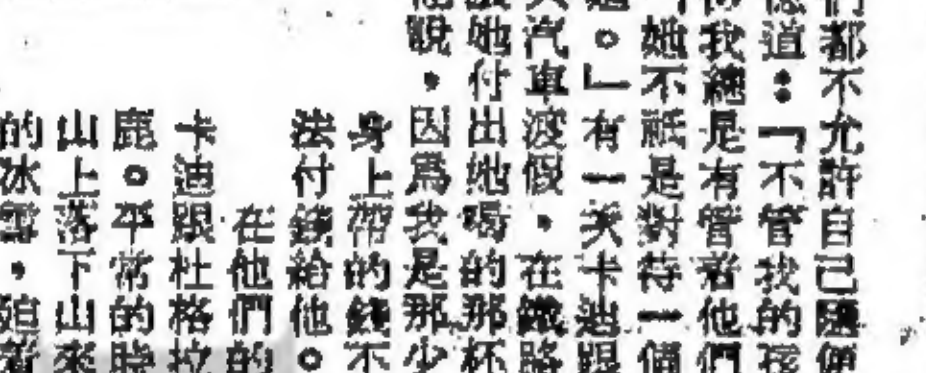 們都不允許自己隨便
道：「不管我的孩
我總是有管着他們
她不祇是對待一個
。」有一天卡迪跟
汽車渡假，在鐵路
她付出她喝的那杯
說，因爲我是那少
身上帶的錢不
法付錢給他。
在他們的
卡迪跟杜格拉
鹿。平常的時
山上落下山來
的冰雪，迫着